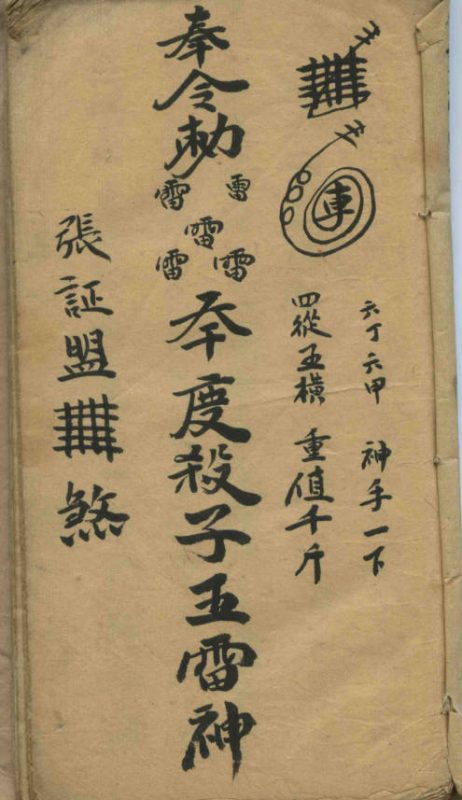 車
六丁六甲 神手一下
四從五橫 重值千斤
奉令勅
雷雷雷雷雷
夲度殺子五雷神
張証盟煞